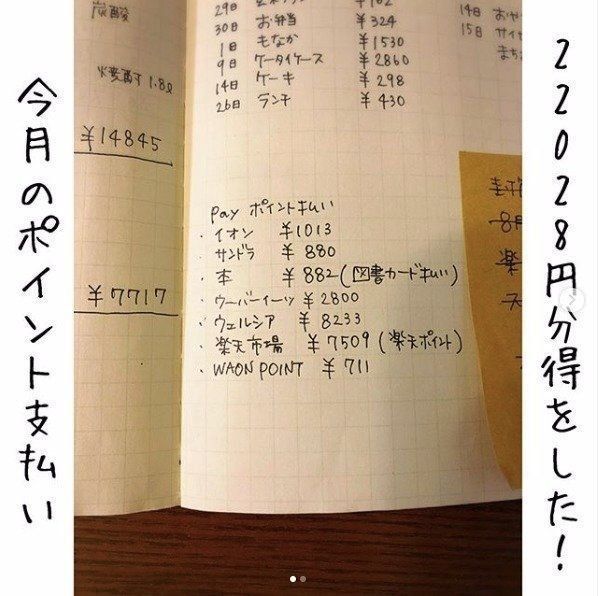 今月のポイント支払い
22028円分得をした！
炭酸
¥14845
¥7717
29日
30日 お弁当 ¥324
1日 もなか ¥1530
9日 ケータイケース ¥2860
14日 ケーキ ¥298
26日 ランチ ¥430
14日
15日
pay ポイント払い
・イオン ¥1013
・サンドラ ¥880
・本 ¥882(図書カード払い)
・ウーバーイーツ ¥2800
・ウェルシア ¥8233
・楽天市場 ¥7509(楽天ポイント)
・WAON POINT ¥711